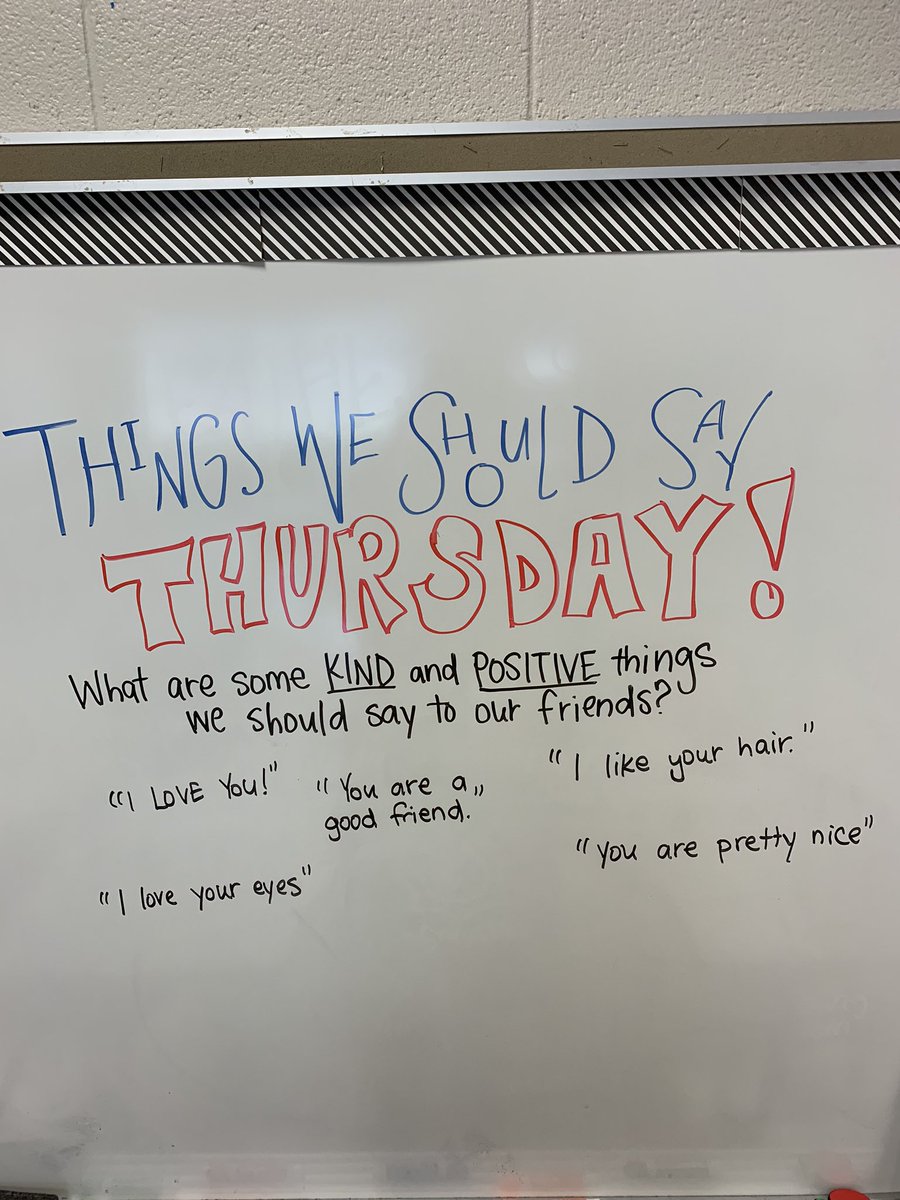 THINGS WE SHOULD SAY
THURSDAY!
What are some KIND and POSITIVE things
we should say to our friends?
"I LOVE YOU!"
"You are a
good friend."
"I like your hair."
"you are pretty nice"
"I love your eyes"